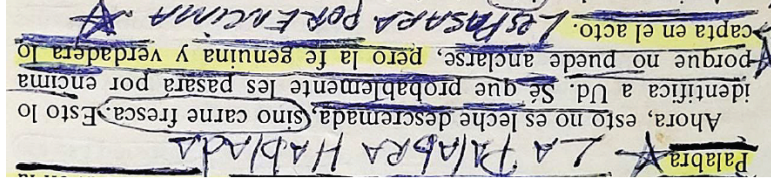 Palabra LA PAlAbRA HAblAdA
Ahora, esto no es leche descremada, sino carne fresca. Esto lo
identifica a Ud. Sé que probablemente les pasará por encima
porque no puede anclarse, pero la fe genuina y verdadera lo
capta en el acto. LesPASARA PORENCIMA